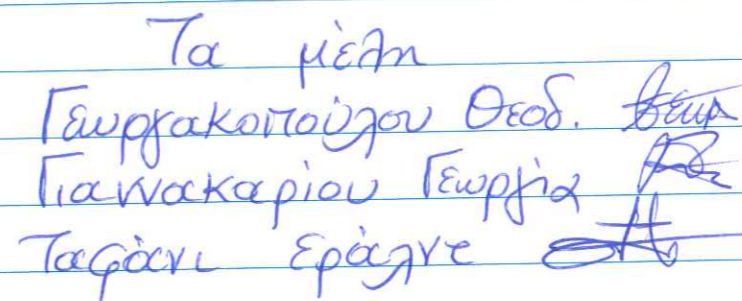 Τα μέλη
Γεωργακοπούλου Θεοδ.
Γιαννακαρίου Γεωργία
Ταφάνι Εράλντ